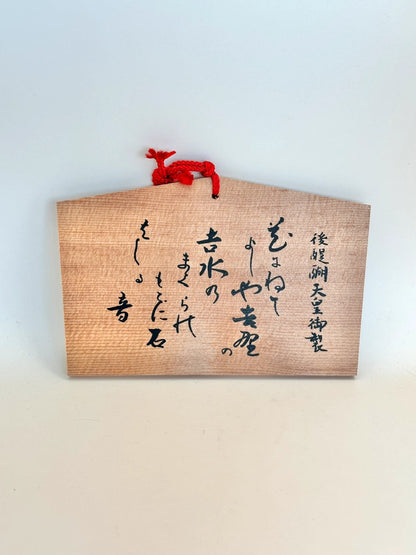 後醍醐天皇御製
花にねて
よしや吉野の
吉水乃
まくらの
もとに石
はしる音